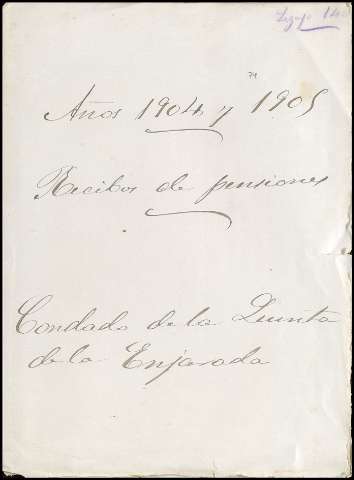 Legajo 14
74
Años 1904 y 1905
Recibos de pensiones
Condado de la Quinta
de la Enjarada